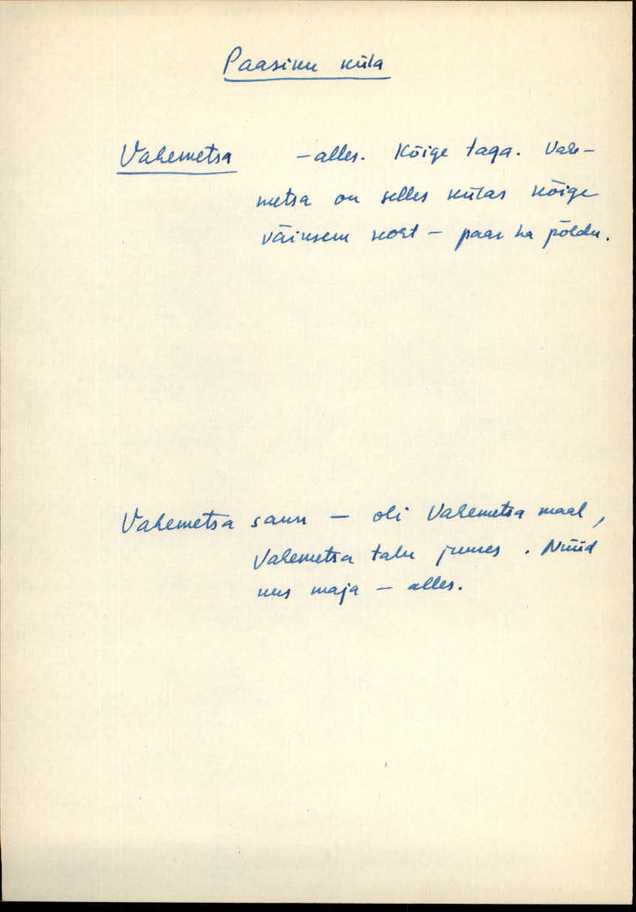 Paasiku küla
Vahemetsa – alles. Kõige taga. Vahe-
metsa on selles külas kõige
väiksem koht – paar ha põldu.
Vahemetsa saun – oli Vahemetsa maal,
Vahemetsa talu juures. Nüüd
uus maja – alles.